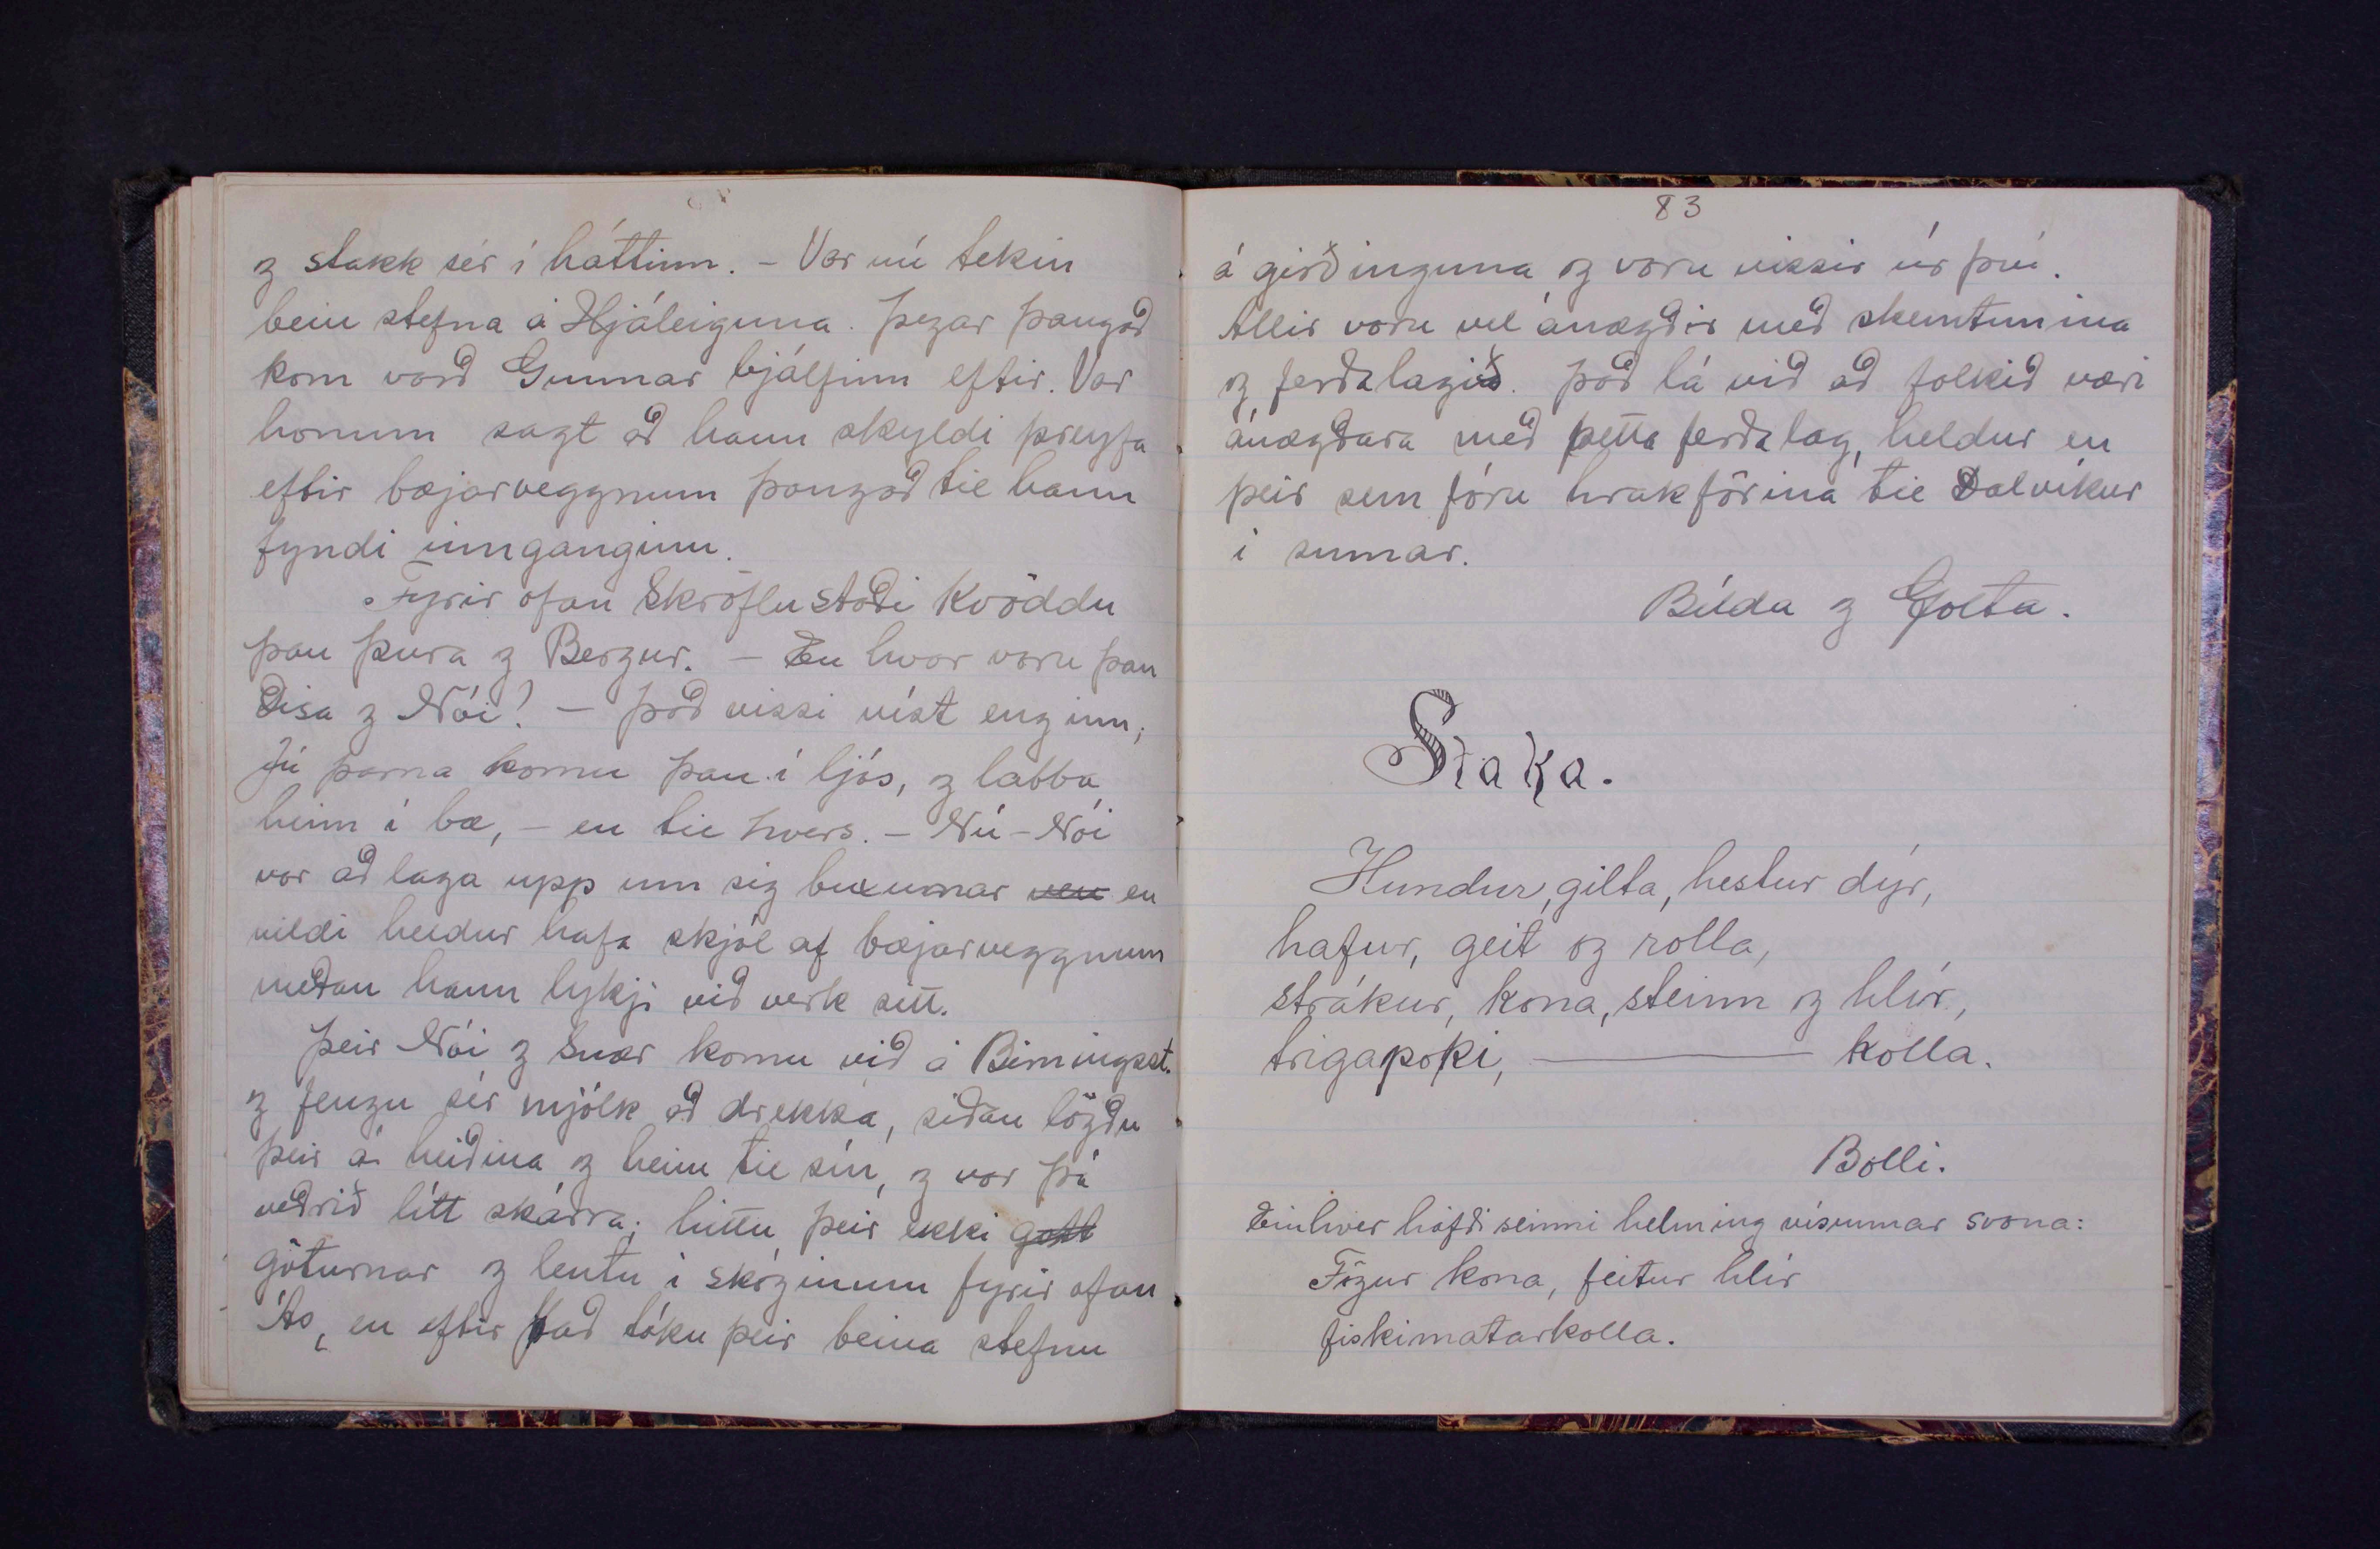 og stakk sér í háttinn. - Var nú tekin
bein stefna á Hjáleiguna. Þegar þangað
kom varð Gunnar bjálfinn eftir. Var
honum sagt að hann skyldi þreyfa
eftir bæjarveggnum þangað til hann
fyndi innganginn.
Fyrir ofan Skröflustaði kvöddu
þau Þura og Bergur. - En hvar voru þau
Dísa og Nói! - Það vissi víst enginn;
Jú þarna komu þau í ljós, og labba
heim í bæ, - en til hvers. - Nú - Nói
var að laga upp um sig buxurnar en
vildi heldur hafa skjól af bæjarveggnum
meðan hann lykji við verk sitt.
Þeir Nói og Snær komu við á Birningsst.
og fengu sér mjólk að drekka, síðan lögðu
þeir á heiðina og heim til sín, og var þá
veðrið lítt skárra; hittu þeir ekki gott
göturnar og lentu í skóginum fyrir ofan
Ás, en eftir það tóku þeir beina stefnu
83
á girðinguna og voru vissir úr því.
Allir voru vel ánægðir með skemtunina
og ferðalagið. Það lá við að fólkið væri
ánægðara með þetta ferðalag, heldur en
þeir sem fóru hrakförina til Dalvíkur
í sumar.
Bílda og Golta.
Staka.
Hundur, gilta, hestur dýr,
hafur, geit og rolla,
strákur, kona, steinn og hlír,
trigapoki, ——— kolla.
Bolli.
Einhver hafði seinni helming vísunnar svona:
Fögur kona, feitur hlír
fiskimatarkolla.